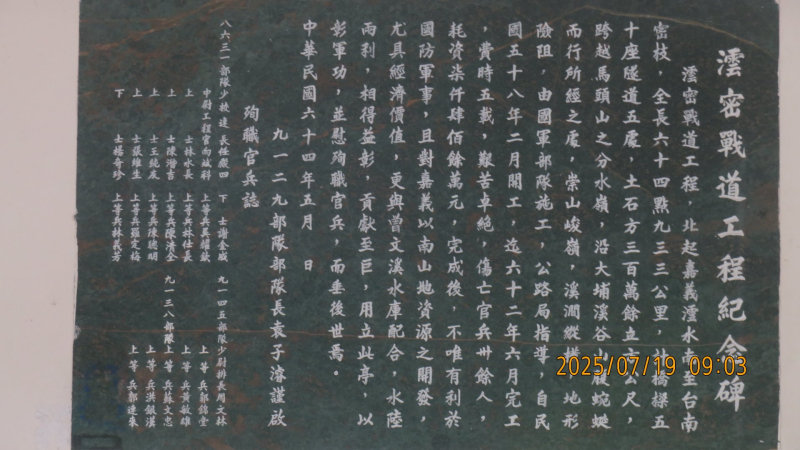 澐密戰道工程紀念碑
澐密戰道工程，北起嘉義澐水，至台南
密枝，全長六十四點九三三公里，橋樑五
十座隧道五處，土石方三百萬餘立方公尺，
跨越馬頭山之分水嶺，沿大埔溪谷腹蜿蜒
而行所經之處，崇山峻嶺，溪澗縱橫，地形
險阻，由國軍部隊施工，公路局指導，自民
國五十八年二月開工，迄六十二年六月完工
，費時五載，艱苦卓絕，傷亡官兵卅餘人，
耗資柒仟肆佰餘萬元，完成後，不唯有利於
國防軍事，且對嘉義以南山地資源之開發，
尤具經濟價值，更與曾文溪水庫配合，水陸
兩利，相得益彰，貢獻至巨，用立此亭，以
彰軍功，並慰殉職官兵，而垂後世焉。
中華民國六十四年五月　日
九一二九部隊部隊長袁子濬謹啟
殉職官兵誌
八六三一部隊少校連長任毅四　下士謝金盛　九一四五部隊少尉排長周文林
中尉工程官向斌科　上等兵吳耀欽　上等兵鄒錦堂
上士林水長　上等兵林仕長　上等兵黃敏雄
上士陳湝吉　上等兵陳清全　九一三八部隊上等兵蘇文忠
上士王純友　上等兵陳聰明　上等兵洪銀漢
上士張維生　上等兵羅定梅　上等兵郭連來
下士楊奇珍　上等兵林義芳
2025/07/19 09:03